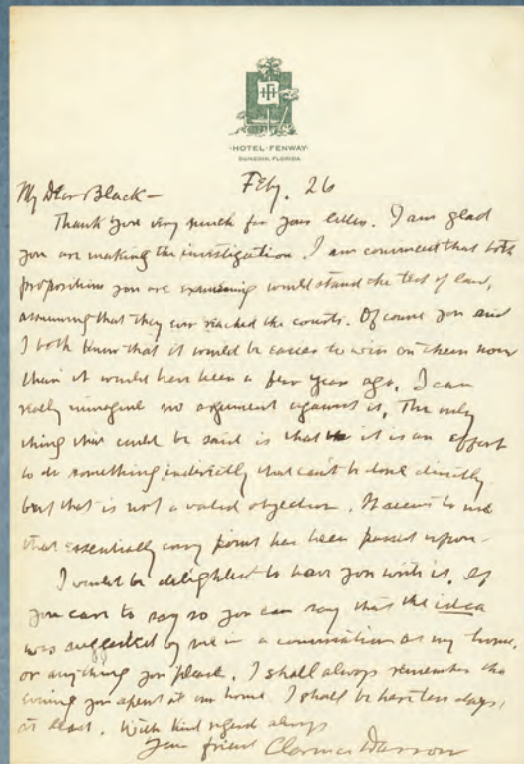 HF
·HOTEL·FENWAY·
DUNEDIN, FLORIDA
My Dear Black— Feby. 26
Thank you very much for your letter. I am glad
you are making the investigation. I am convinced that both
propositions you are examining would stand the test of law,
assuming that they ever reached the courts. Of course you and
I both know that it would be easier to win on them now
than it would have been a few years ago. I can
really imagine no argument against it. The only
thing that could be said is that it is an effort
to do something indirectly that can't be done directly
but that is not a valid objection. It seems to me
that essentially every point has been passed upon—
I would be delighted to have you with us. If
you care to say so you can say that the idea
was suggested by me in a conversation at my home,
or anything you please. I shall always remember the
evening you spent at our home. I shall be here ten days,
at least. With kind regard always
Your friend Clarence Darrow